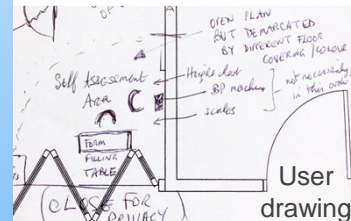 OF
OPEN PLAN
BUT DEMARCATED
BY DIFFERENT FLOOR
COVERING/COLOUR
Self Assessment
Area
Height chart
BP machine
scales
not necessarily
in this order
FORM
FILLING
TABLE
CLOSE FOR
PRIVACY
User
drawing